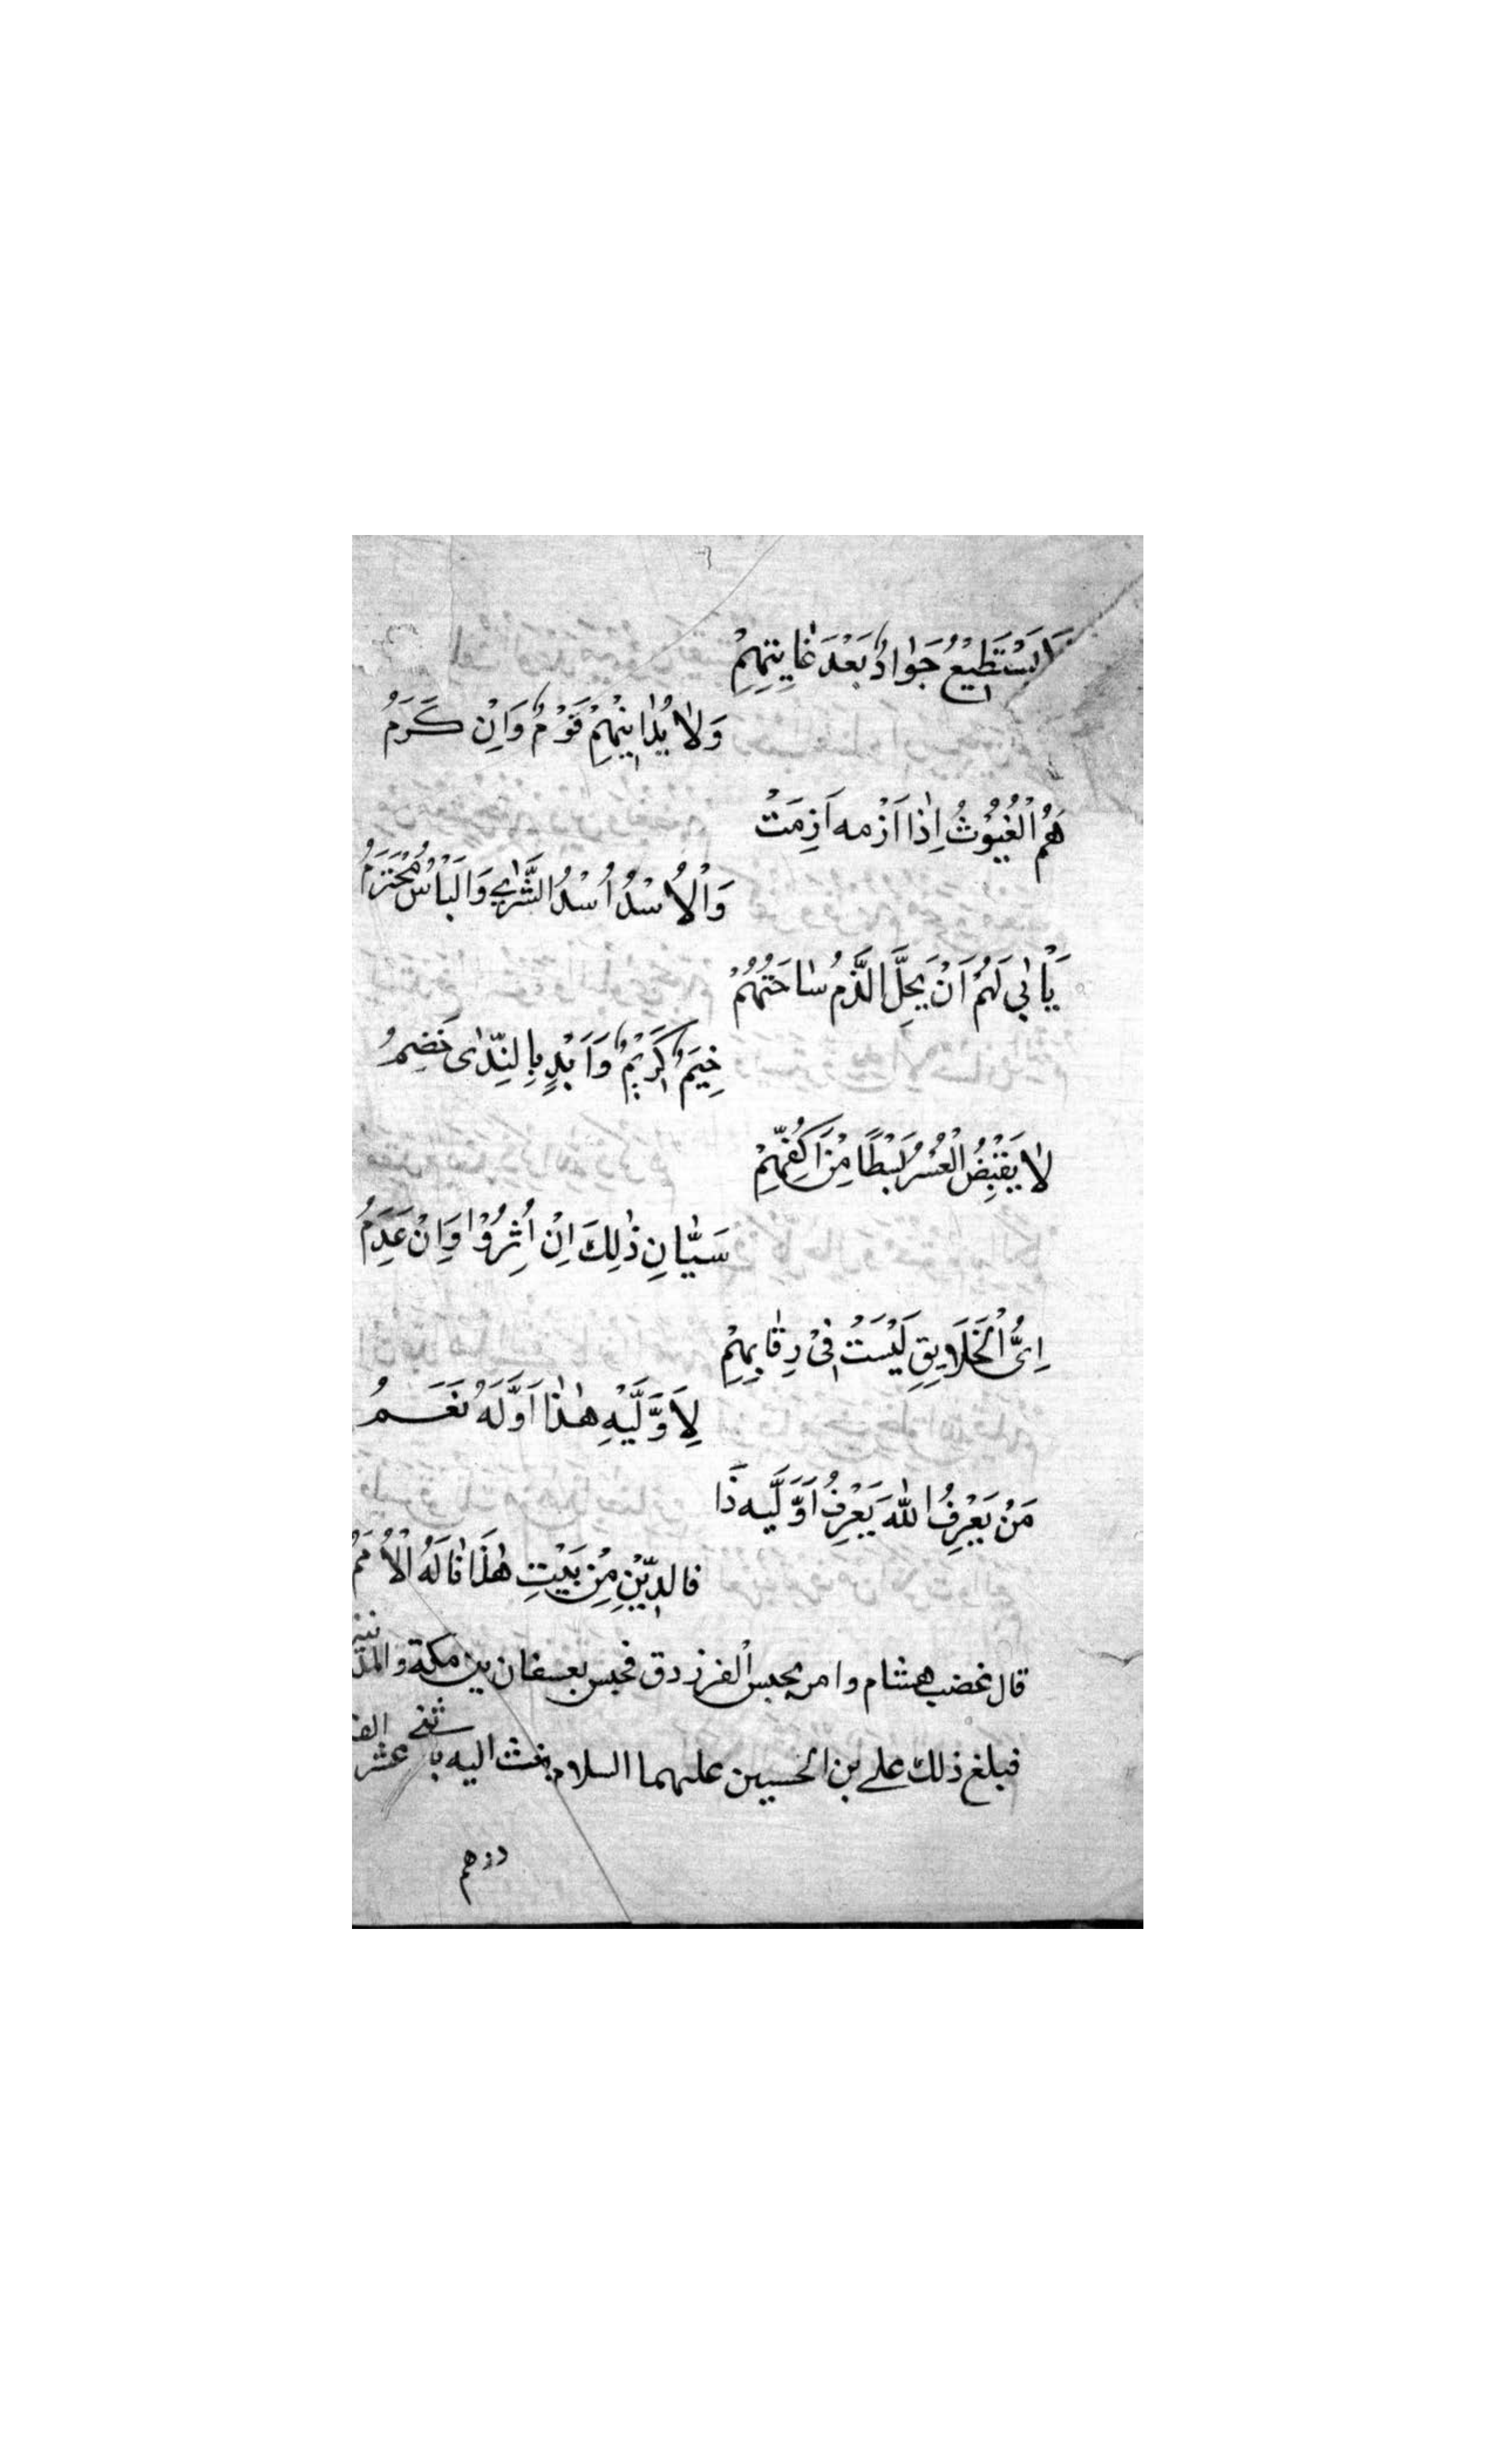 لا یَسْتَطِیْعُ جَوٰادٌ بَعْدَ غٰایِتِهِمْ
وَلاٰ یُدٰانِیْهِمْ قَوْمٌ وَاِنْ کَرَمُ
هُمُ الْغُیُوْثُ اِذٰا اَزْمه اَزِمَتْ
وَالْاُسْدُ اُسْدُ الشَّرٰی وَالْبَاْسُ مُحْتَزَمُ
یَاْبٰی لَهُمْ اَنْ یَحِلَّ الَّذمُ سٰاحَتُهُمْ
خِیَمٌ کَرِیْمٌ وَاَیْدٍ بِالنِّدٰی خَضِمُ
لاٰ یَقْبِضُ الْعُسْرُ بَسْطًا مِنْ اَکُفِّهِمْ
سَیّٰانِ ذٰلِكَ اِنْ اُثِرُوْا وَاِنْ عَدِمُ
اِیُّ الْخَلَایِقِ لَیْسَتْ فِیْ رِقٰابِهِمْ
لِاَوَّلَیَّهِ هٰذٰا اَوَّلَهُ نَعَمُ
مَنْ یَعْرِفُ اللّٰهَ یَعْرِفُ اَوَّلَیَّه ذَا
فالدِّیْنِ مِنْ بَیْتِ هٰذَا نٰالَهُ الْاُمَمُ
قال فغضب هشام وامر بحبس الفرزدق فحبس بعسفان بین مکة والمدینة
فبلغ ذلك علی بن الحسین علیهما السلام فبعث الیه باثنی عشر الف
درهم